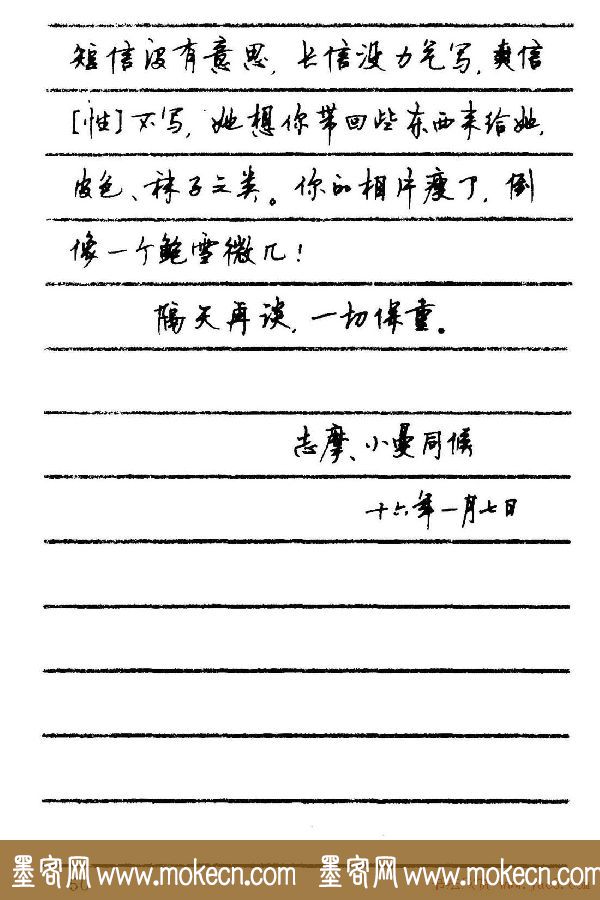 短信没有意思,长信没力气写,爽信
[性]不写,她想你带回些东西来给她,
皮包、袜子之类。你的相片瘦了,倒
像一个鲍雪微几!
隔天再谈,一切保重。
志摩、小曼同候
十六年一月七日
墨客网 www.mokecn.com 墨客网 www.mokecn.com
50